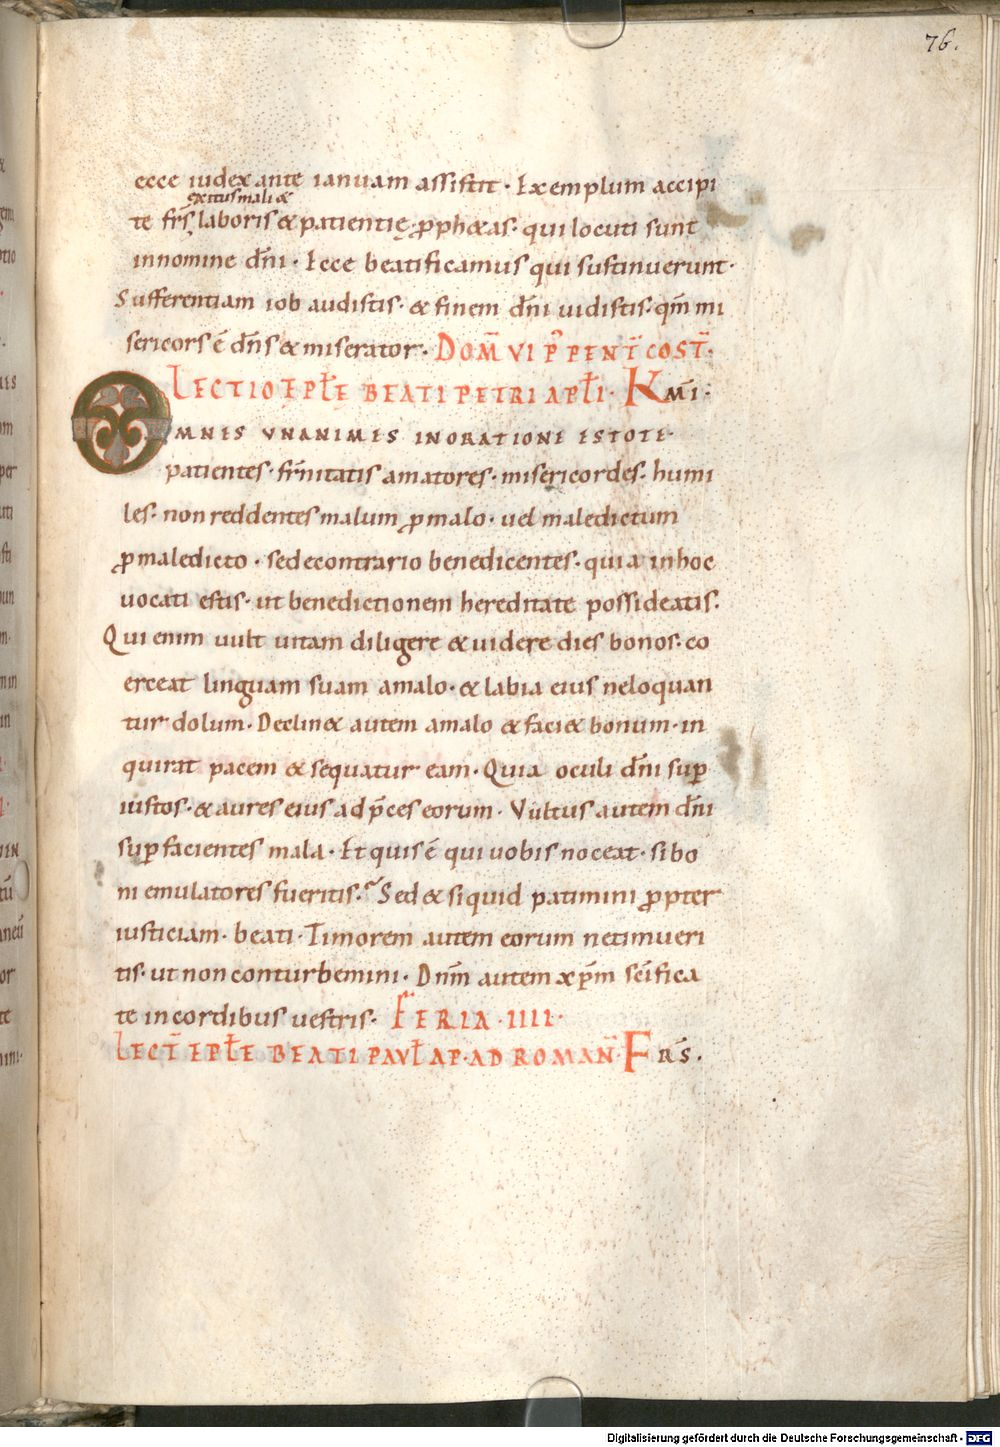 76.
ecce iudex ante ianuam assistit · Exemplum accipi
exitus mali &
te frs̄ laboris & patientię · ꝓph&as · qui locuti sunt
innomine dn̄i · Ecce beatificamus qui sustinuerunt ·
Sufferentiam iob audistis · & finem dn̄i uidistis · qm̄ mi
sericors ē dn̄s & miserator · DOM̄ VI P̄ PENT̄ COST̄ ·
LECTIO EPL̄E BEATI PETRI APL̄I · KMI̅ ·
OMNES VNANIMES INORATIONE ESTOTE ·
patientes · frn̄itatis amatores · misericordes · humi
les · non reddentes malum ꝓmalo · uel maledictum
ꝓmaledicto · sedecontrario benedicentes · quia inhoc
uocati estis · ut benedictionem hereditate possideatis ·
Qui enim uult uitam diligere & uidere dies bonos · co
erceat linguam suam amalo · & labia eius neloquan
tur dolum · Declin& autem amalo & faci& bonum · in
quirat pacem & sequatur eam · Quia oculi dn̄i suꝑ
iustos · & aures eius adp̄ces eorum · Vultus autem dn̄i
suꝑ facientes mala · Et quis ē qui uobis noceat · si bo
ni emulatores fueritis · Sed & siquid patimini ꝓpter
iusticiam · beati · Timorem autem eorum netimueri
tis · ut non conturbemini · Dnm̄ autem xp̄m sc̄ifica
te incordibus uestris · FERIA · IIII ·
LECT̄ EPL̄E BEATI PAVL̄ AP · AD ROMAN̄ · FRS̄ ·
Digitalisierung gefördert durch die Deutsche Forschungsgemeinschaft - DFG